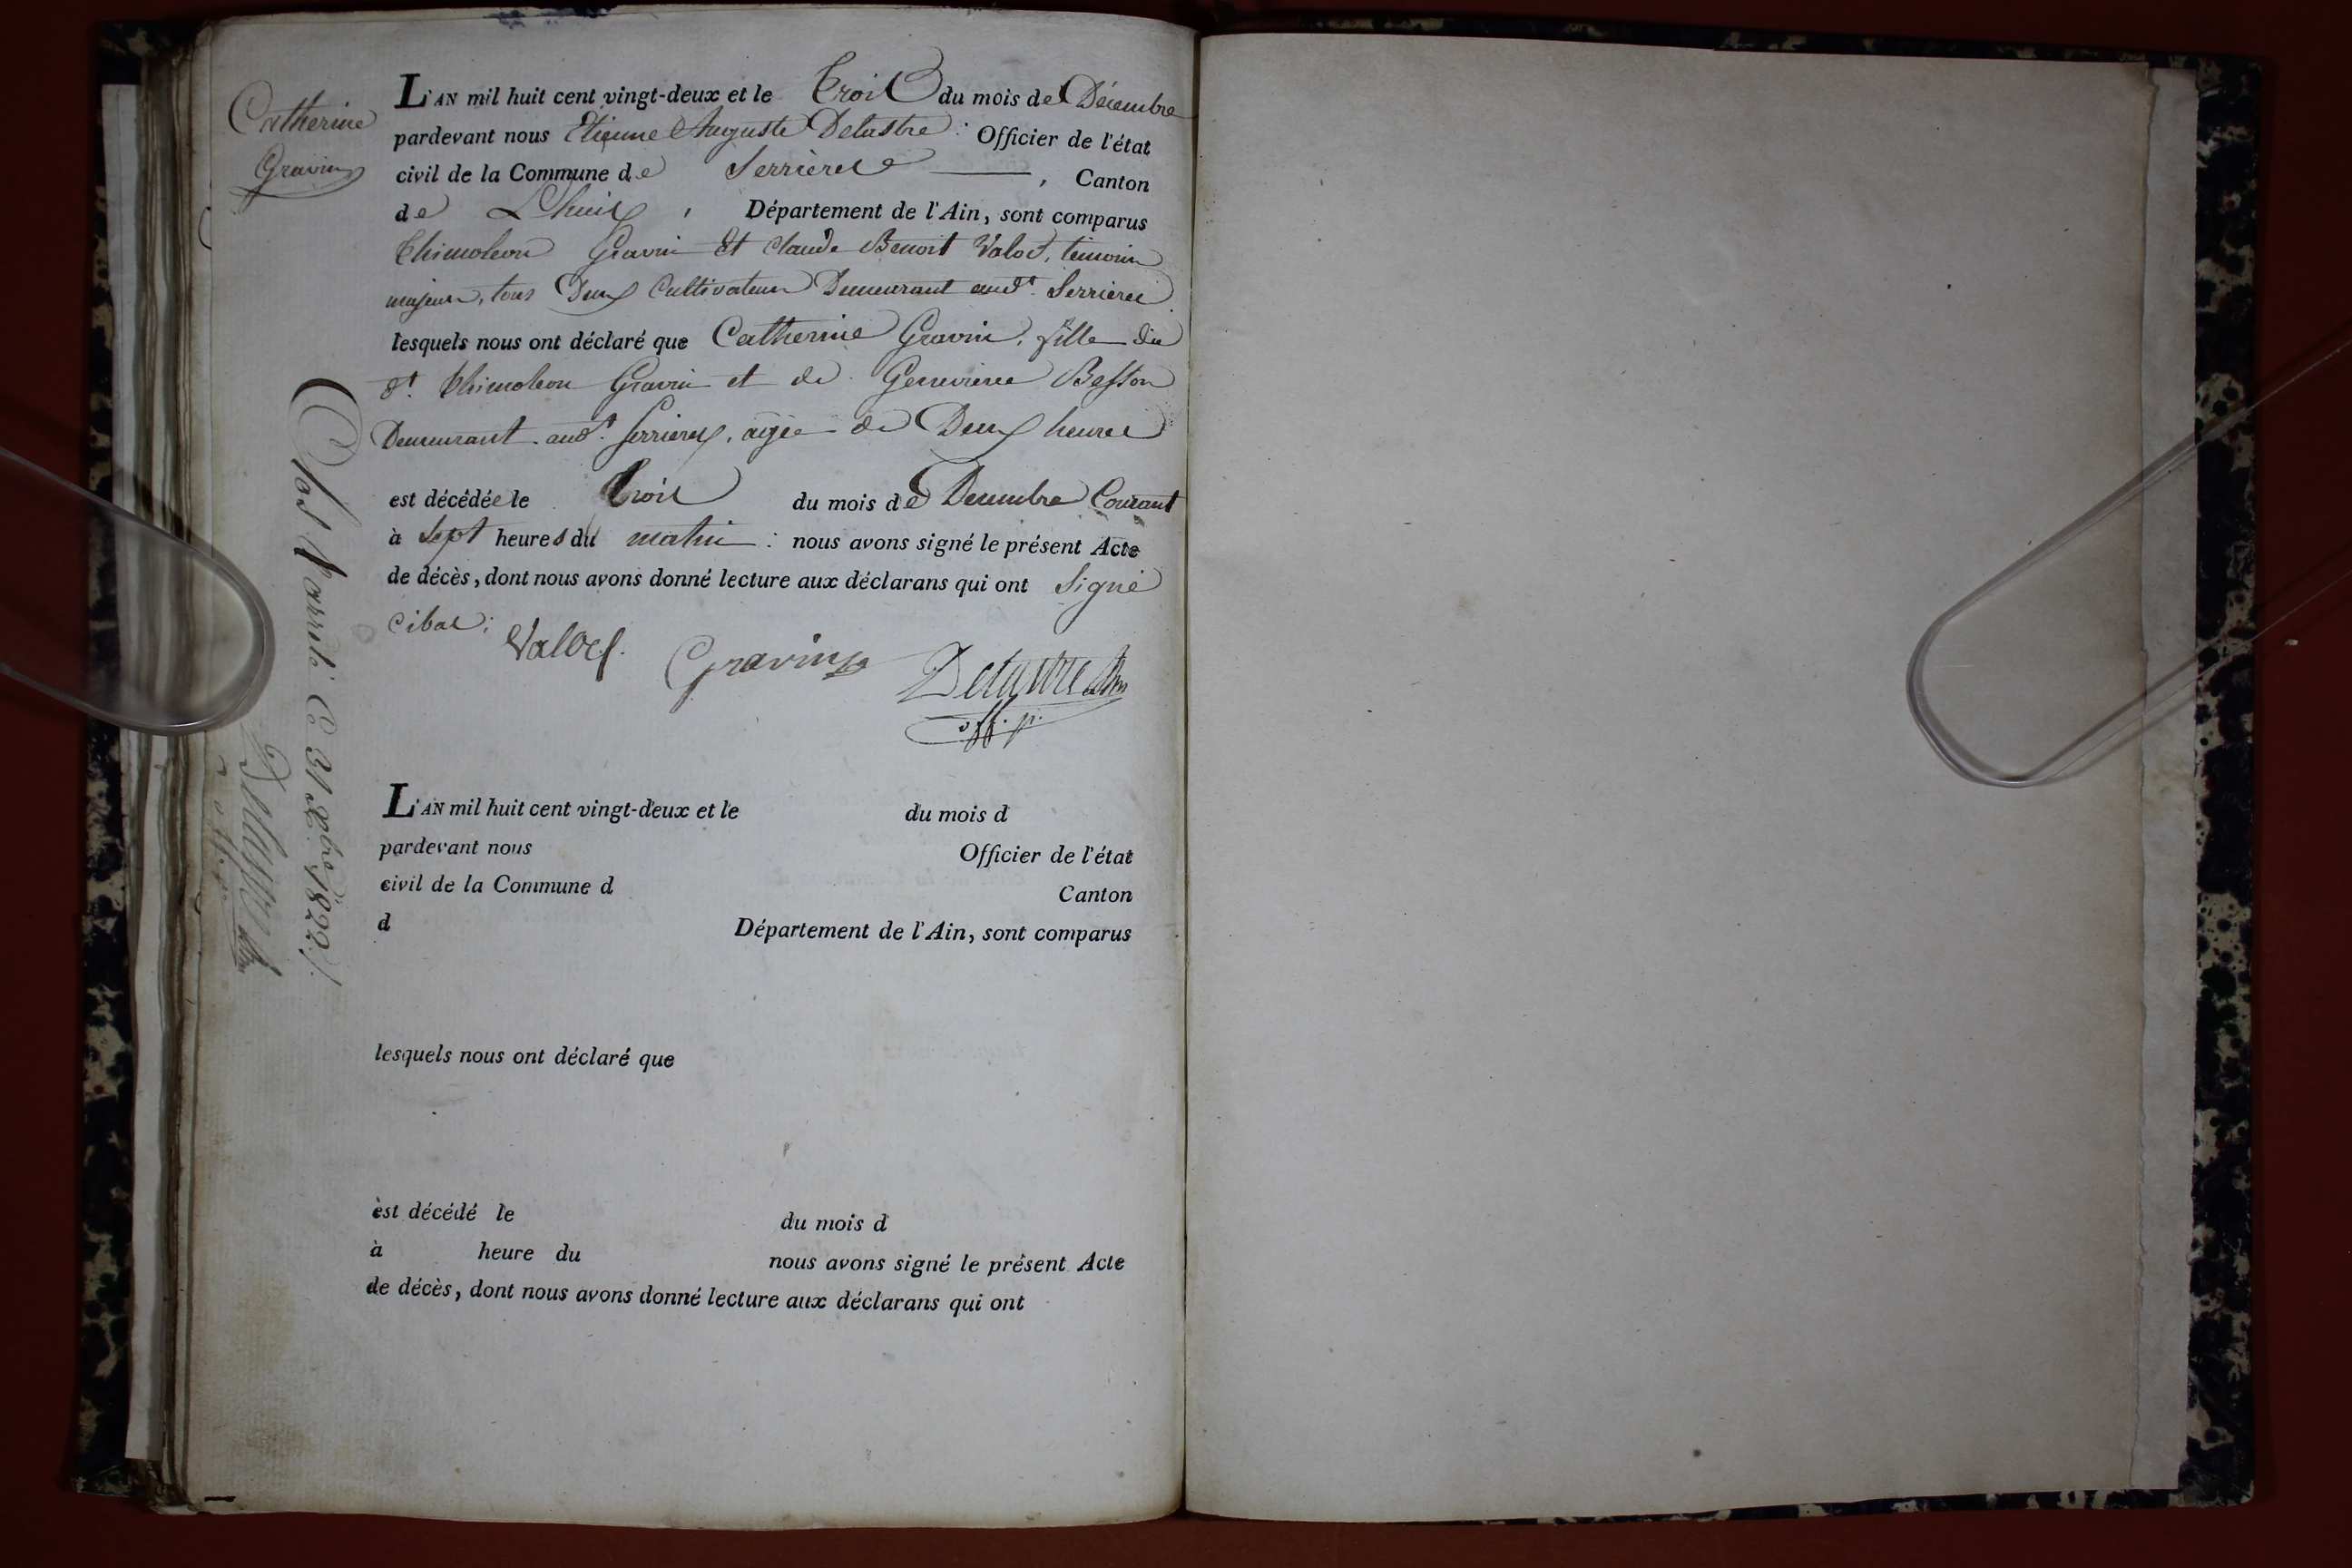 Catherine
Gravin
L'AN mil huit cent vingt-deux et le Trois du mois de Décembre
pardevant nous Etienne Auguste Delastre : Officier de l'état
civil de la Commune de Serrières , Canton
de Lhuis , Département de l'Ain, sont comparus
Thimoleon Gravin Et Claude Benoit Valod, témoins
majeurs, tous Deux Cultivateurs Demeurant aud.t Serrieres
lesquels nous ont déclaré que Catherine Gravin, fille du
d.t Thimoleon Gravin et de Genevieve Besson
Demeurant aud.t Serrieres, agée de Deux heures
est décédée le Trois du mois de Decembre Courant
à Sept heures du matin : nous avons signé le présent Acte
de décès, dont nous avons donné lecture aux déclarans qui ont Signé
Cibas :
Valod.
Gravin
Delastre
off. p.
Clos & arrêté Ce 31 Xbre 1822.
Delastre
L'AN mil huit cent vingt-deux et le du mois d
pardevant nous Officier de l'état
civil de la Commune d Canton
d Département de l'Ain, sont comparus
lesquels nous ont déclaré que
est décédé le du mois d
à heure du nous avons signé le présent Acte
de décès, dont nous avons donné lecture aux déclarans qui ont